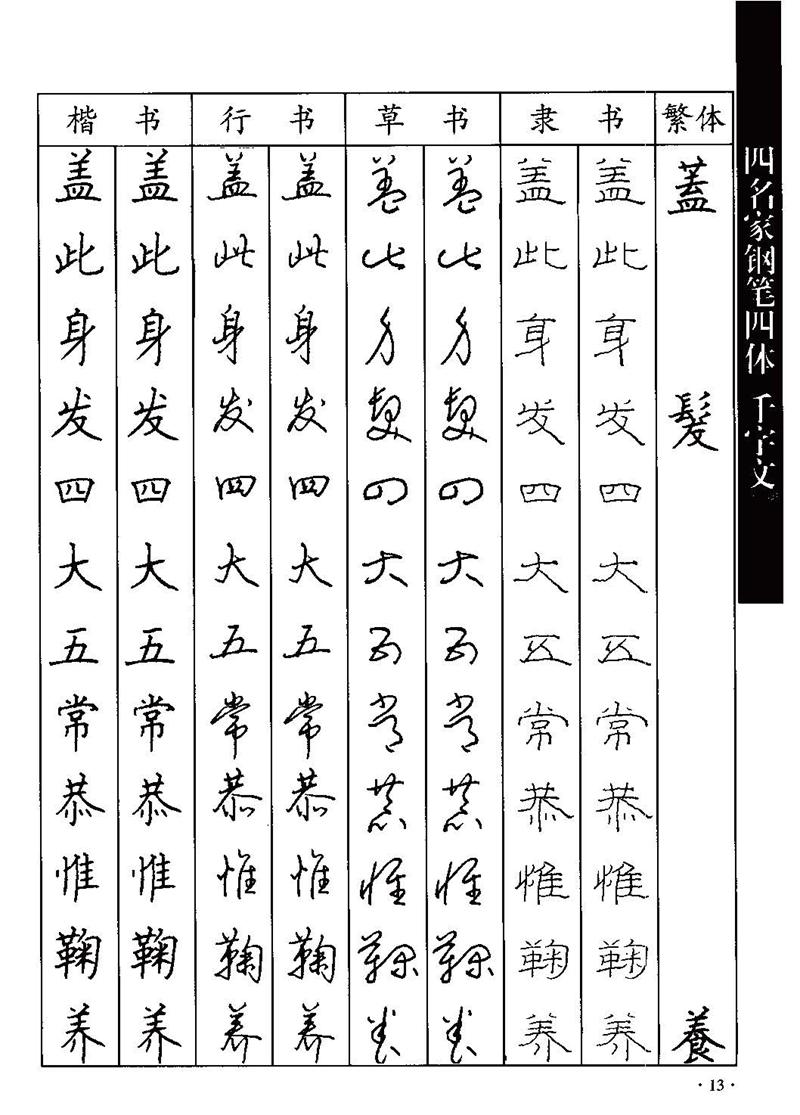 楷 书 行 书 草 书 隶 书 繁体
盖 盖 盖 盖 盖 盖 盖 盖 蓋
此 此 此 此 此 此 此 此
身 身 身 身 身 身 身 身
发 发 发 发 发 发 发 发 髮
四 四 四 四 四 四 四 四
大 大 大 大 大 大 大 大
五 五 五 五 五 五 五 五
常 常 常 常 常 常 常 常
恭 恭 恭 恭 恭 恭 恭 恭
惟 惟 惟 惟 惟 惟 惟 惟
鞠 鞠 鞠 鞠 鞠 鞠 鞠 鞠
养 养 养 养 养 养 养 养 養
四名家钢笔四体 千字文
·13·